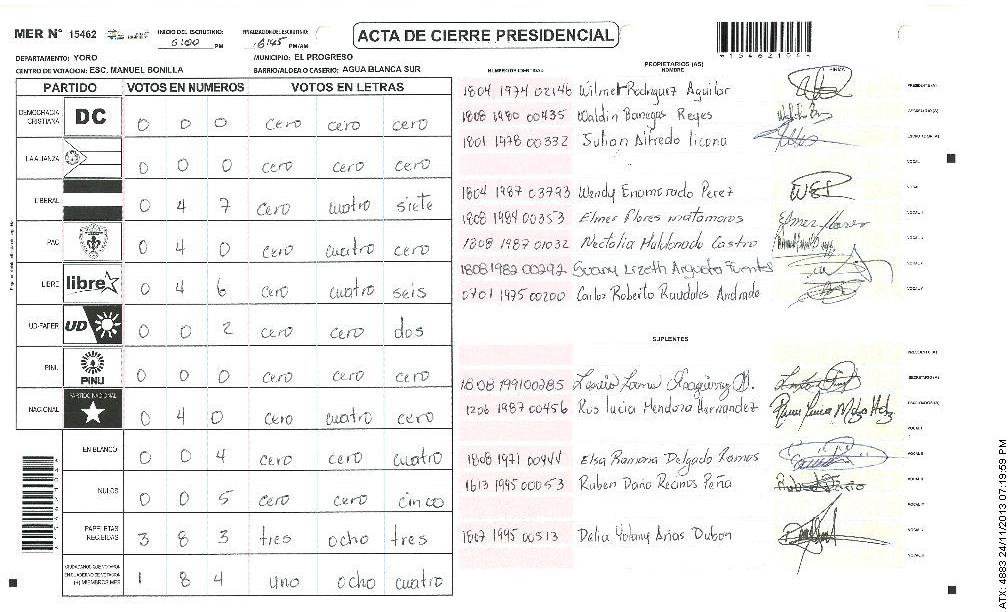 MER N° 15462
INICIO DEL ESCRUTINIO: 6:00 PM
FINALIZACION DEL ESCRUTINIO: 6:45 PM/AM
ACTA DE CIERRE PRESIDENCIAL
DEPARTAMENTO: YORO
MUNICIPIO: EL PROGRESO
CENTRO DE VOTACION: ESC. MANUEL BONILLA
BARRIO/ALDEA O CASERIO: AGUA BLANCA SUR
PARTIDO VOTOS EN NUMEROS VOTOS EN LETRAS
DEMOCRACIA CRISTIANA DC 0 0 0 cero cero cero
LA ALIANZA 0 0 0 cero cero cero
LIBERAL 0 4 7 cero cuatro siete
PAC 0 4 0 cero cuatro cero
LIBRE libre 0 4 6 cero cuatro seis
UD-FAPER UD 0 0 2 cero cero dos
PINU PINU 0 0 0 cero cero cero
NACIONAL PARTIDO NACIONAL 0 4 0 cero cuatro cero
EN BLANCO 0 0 4 cero cero cuatro
NULOS 0 0 5 cero cero cinco
PAPELETAS RECIBIDAS 3 8 3 tres ocho tres
CIUDADANOS QUE VOTARON EN CUADERNO DE VOTACION (+) MIEMBROS MER 1 8 4 uno ocho cuatro
PROPIETARIOS (AS)
NUMERO DE IDENTIDAD NOMBRE FIRMA
1804 1974 02146 Wilmer Rodriguez Aguilar PRESIDENTE (A)
1808 1980 00435 Waldin Banegas Reyes SECRETARIO (A)
1801 1978 00332 Julian Alfredo licona ESCRUTADOR (A)
VOCAL I
1804 1987 03793 Wendy Enamorado Perez
1808 1984 00353 Elmer Flores matamoros Elmer Flores
1808 1987 01032 Nectalia Maldonado Castro
1808 1982 00292 Suany Lizeth Argueta Fuentes
0701 1975 00200 Carlos Roberto Raudales Andrade
SUPLENTES
PRESIDENTE (A)
1808 1991 00285 SECRETARIO (A)
1206 1987 00456 Rus lucia Mendoza Hernandez ESCRUTADOR (A)
1808 1971 00444 Elsa Ramona Delgado Ramos
1613 1995 00053 Ruben Dario Recinos Peña
1807 1995 00513 Delia Yolany Arias Dubon
ATX: 4883 24/11/2013 07:19:59 PM